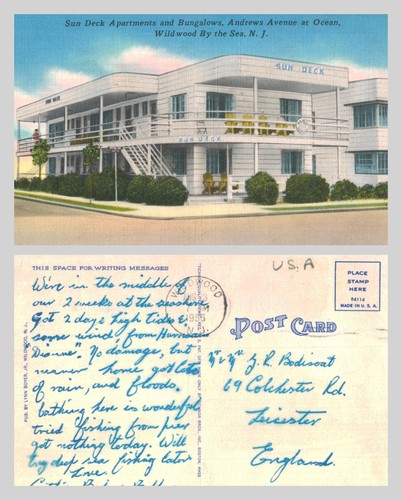 Sun Deck Apartments and Bungalows, Andrews Avenue at Ocean,
Wildwood By the Sea, N. J.
SUN DECK
SUN DECK
THIS SPACE FOR WRITING MESSAGES
We're in the middle of
our 2 weeks at the seashore.
Got 2 days high tides &
some wind from Hurricane
Dianne. No damage, but
nearer home got lots
of rain, and floods.
bathing here is wonderful
tried fishing from pier
got nothing today. Will
try deep sea fishing later
Love.
PUB. BY LYNN BOYER, JR., WILDWOOD, N. J.
WILDWOOD
1955
N.J.
U.S.A
PLACE
STAMP
HERE
MADE IN U. S. A.
POST CARD
Mr & Mrs J. R.
69 Colchester Rd.
Leicester
England.